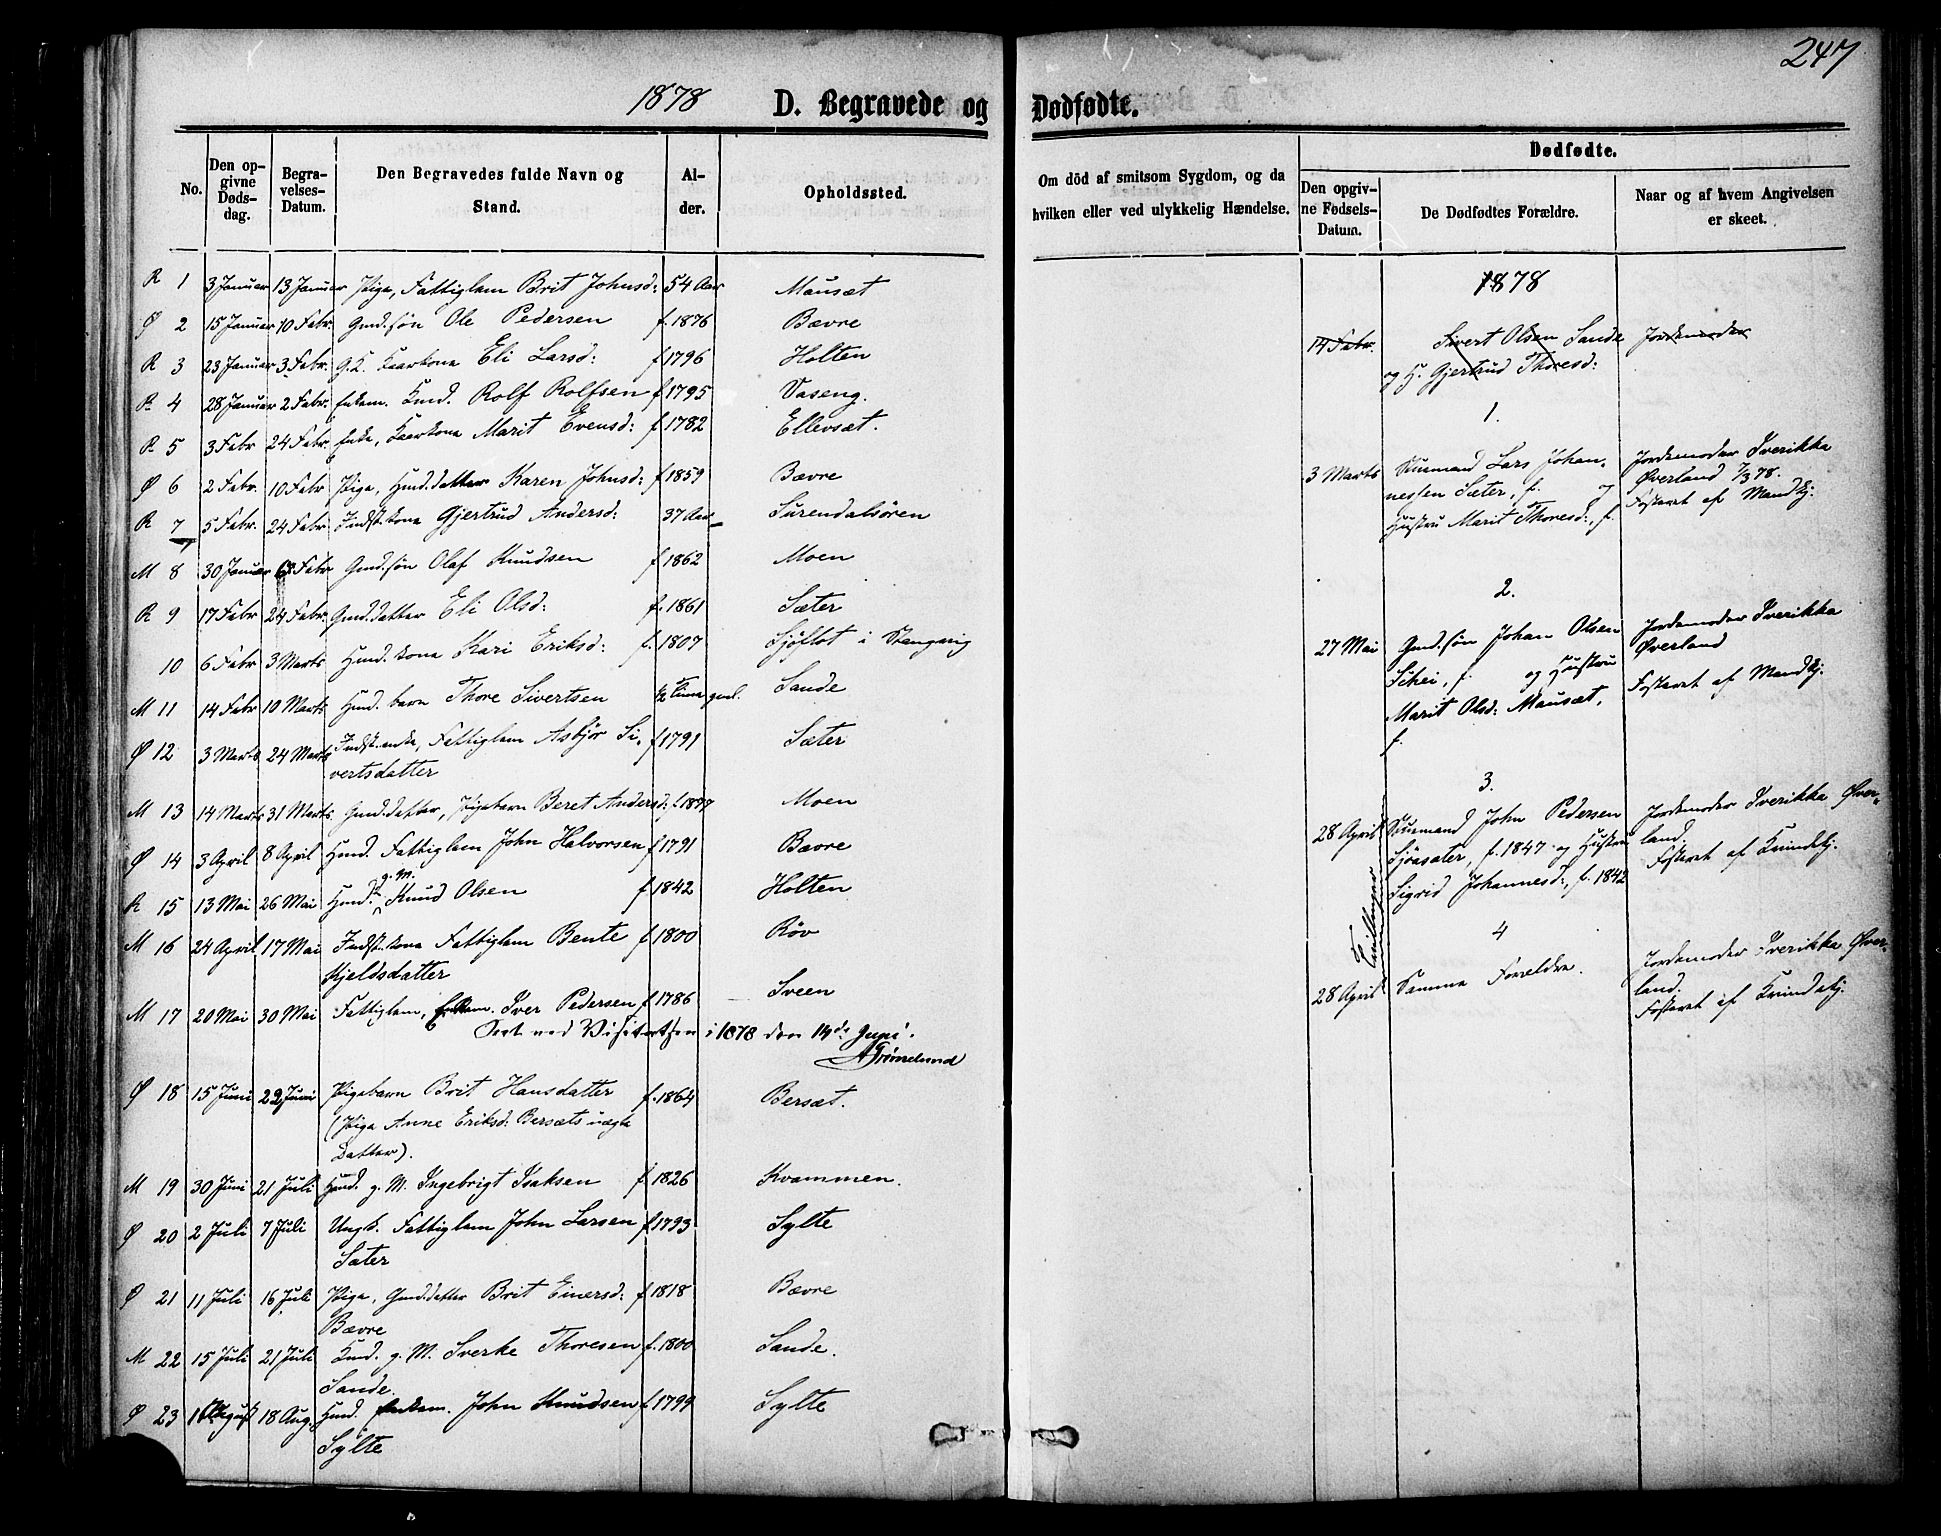 247
1878 D. Begravede og Dødfødte.
No.
Den op-
givne
Døds-
dag.
Begra-
velses-
Datum.
Den Begravedes fulde Navn og
Stand.
Al-
der.
Opholdssted.
Om död af smitsom Sygdom, og da
hvilken eller ved ulykkelig Hændelse.
Dødfødte.
Den opgiv-
ne Fødsels-
Datum.
De Dødfødtes Forældre.
Naar og af hvem Angivelsen
er skeet.
R 1 3 Januar 13 Januar Pige, Fattiglem Brit Johnsd: 54 Aar Mausæt
Ø 2 15 Januar 10 Febr. Gmd. søn Ole Pedersen f. 1876 Bævre
R 3 23 Januar 3 Febr. G.K. Kaarkona Eli Larsd: f 1796 Holten
R 4 28 Januar 2 Febr. Enkem. Kmd. Rolf Rolfsen f 1795 Vaseng.
R 5 3 Febr 24 Febr. Enke, Kaarkona Marit Evensd: f 1782 Ellevsæt.
Ø 6 2 Febr. 10 Febr Pige, Hmd. datter Karen Johnsd: f 1859 Bævre
R 7 5 Febr. 24 Febr. Indst. kona Gjertrud Andersd: 37 Aar Surendalsören
M 8 30 Januar Febr Gmd. søn Olaf Knudsen f 1862 Moen
R 9 17 Febr 24 Febr. Gmd. datter Eli Olsd: f. 1861 Sæter
10 6 Febr 3 Marts Hmd. kona Kari Eriksd: f. 1807 Sjøflot i Stangvig
M 11 14 Febr 10 Marts Hmd. barn Thore Sivertsen ½ Time gml. Sande
Ø 12 3 Marts 24 Marts Indst. enke, Fattiglem Asbjør Si- f 1791 Sæter
vertsdatter
M 13 14 Marts 31 Marts Gmd. datter, Pigebarn Beret Andersd: f. 1877 Moen
Ø 14 3 April 8 April Hmd. Fattiglem John Halvorsen f 1791 Bævre
g. M.
R 15 13 Mai 26 Mai Hmd. Knud Olsen f 1842 Holten
M 16 24 April 17 Mai Indst. kona Fattiglem Bente f 1800 Röv
Kjeldsdatter
M 17 20 Mai 30 Mai Fattiglem, Enkem. Iver Pedersen f 1786 Sveen
Seet ved Visitatsen i 1878 den 14de Juni.
AGrönnelund
Ø 18 15 Juni 22 Juni Pigebarn Brit Hansdatter f. 1864 Bersæt.
(Pige Anne Eriksd: Bersæts uægte
Datter).
M 19 30 Juni 21 Juli Hmd. g. M. Ingebrigt Isaksen f 1826 Kvammen.
Ø 20 2 Juli 7 Juli Ungk. Fattiglem John Larsen f 1793 Sylte
Sæter
Ø 21 11 Juli 16 Juli Pige, Gmd. datter Brit Einersd: f 1818 Bævre
Bævre
M 22 15 Juli 21 Juli Kmd. g. M. Sverke Thoresen f. 1800 Sande.
Sande.
Ø 23 1 August 18 Aug. Hmd. Enkem. John Knudsen f 1799 Sylte
Sylte
1878
14 Febr. Sivert Olsen Sande Jordemoder
og H. Gjertrud Thoresd:
1.
3 Marts Husmand Lars Johan- Jordemoder Sverikka
nessen Sæter, f. og Øverland 7/3 78.
Hustru Marit Thoresd:, f. Fosteret af Mandkj:
2.
27 Mai Gmd. søn Johan Olsen Jordemoder Sverikka
Schei, f. og Hustru Øverland
Marit Olsd: Mausæt, Fosteret af Mandkj:
f.
3.
28 April Husmand John Pedersen Jordemoder Sverikka Øver-
Sjøasæter, f. 1847 og Hustru land.
Sigrid Johannesd:, f. 1842 Fosteret af Kvindekj:
Tvillinger
4
28 April Samme Forældre. Jordemoder Sverikka Øver-
land.
Fosteret af Kvindekj: